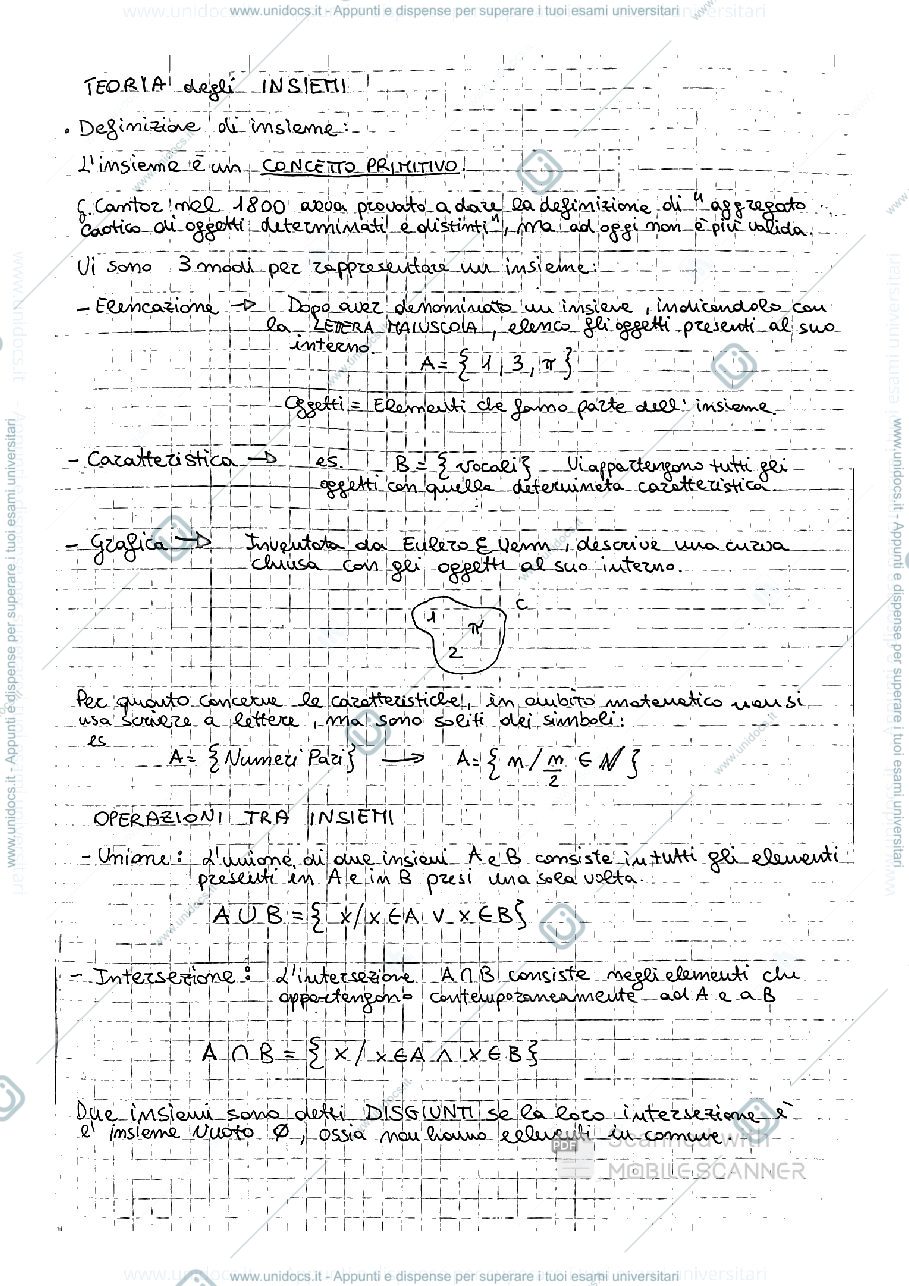 www.unidocs.it - Appunti e dispense per superare i tuoi esami universitari
TEORIA degli INSIEMI
• Definizione di insieme:
L'insieme è un CONCETTO PRIMITIVO!
G. Cantor nel 1800 aveva provato a dare la definizione di "aggregato
caotico di oggetti determinati e distinti", ma ad oggi non è più valida.
Vi sono 3 modi per rappresentare un insieme:
- Elencazione → Dopo aver denominato un insieme, indicandolo con
la LETTERA MAIUSCOLA, elenco gli oggetti presenti al suo
interno.
A = { 1, 3, π }
Oggetti = Elementi che fanno parte dell'insieme
- Caratteristica → es. B = { vocali } Vi appartengono tutti gli
oggetti con quella determinata caratteristica
- Grafica → Inventata da Eulero E Venn, descrive una curva
chiusa con gli oggetti al suo interno.
C
1
π
2
Per quanto concerne le caratteristiche, in ambito matematico non si
usa scrivere a lettere, ma sono soliti dei simboli:
es
A = { Numeri Pari } → A = { n / n/2 ∈ N }
OPERAZIONI TRA INSIEMI
- Unione: L'unione di due insiemi A e B consiste in tutti gli elementi
presenti in A e in B presi una sola volta.
A ∪ B = { x / x ∈ A ∨ x ∈ B }
- Intersezione: L'intersezione A ∩ B consiste negli elementi che
appartengono contemporaneamente ad A e a B
A ∩ B = { x / x ∈ A ∧ x ∈ B }
Due insiemi sono detti DISGIUNTI se la loro intersezione è
l'insieme vuoto Ø, ossia non hanno elementi in comune.
PDF Scanned with
MOBILE SCANNER
www.unidocs.it - Appunti e dispense per superare i tuoi esami universitari